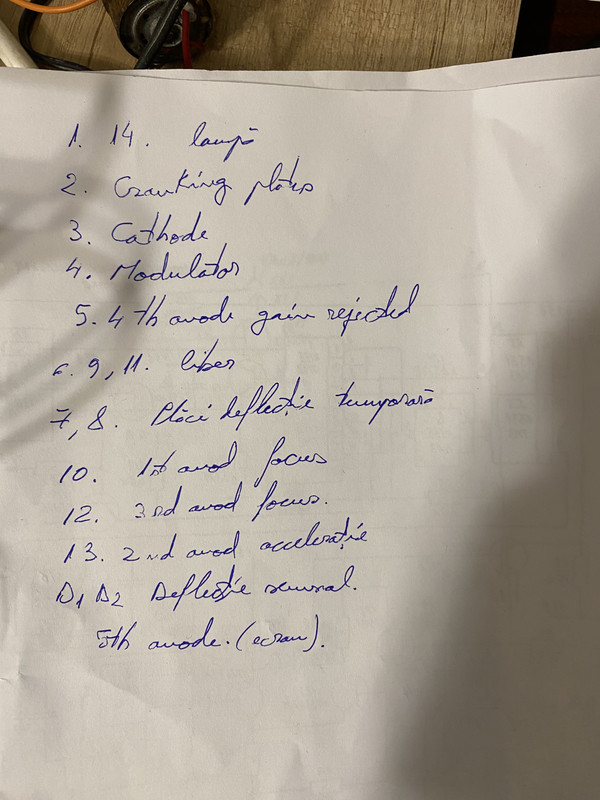 1. 14. lampă
2. Cranking plates
3. Cathode
4. Modulator
5. 4th anode gain rejected
6. 9, 11. liber
7, 8. Plăci deflecție temporară
10. 1st anod focus
12. 3rd anod focus.
13. 2nd anod accelerație
D1 D2 Deflecție semnal.
5th anode. (ecran).